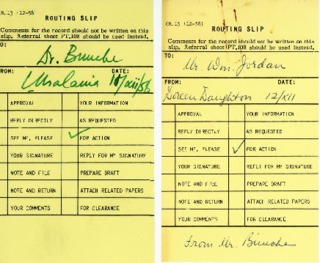 CR.13 (12-56)
ROUTING SLIP
Comments for the record should not be written on this
slip. Referral sheet PT.108 should be used instead.
TO:
Dr. Bunche
FROM: DATE:
APPROVAL YOUR INFORMATION
REPLY DIRECTLY AS REQUESTED
SEE ME, PLEASE ✓ FOR ACTION
YOUR SIGNATURE REPLY FOR MY SIGNATURE
NOTE AND FILE PREPARE DRAFT
NOTE AND RETURN ATTACH RELATED PAPERS
YOUR COMMENTS FOR CLEARANCE
CR.13 (12-56)
ROUTING SLIP
Comments for the record should not be written on this
slip. Referral sheet PT.108 should be used instead.
TO:
Mr. Wm. Jordan
FROM: DATE:
Doreen Daughton 12/xii
APPROVAL YOUR INFORMATION
REPLY DIRECTLY AS REQUESTED
SEE ME, PLEASE ✓ FOR ACTION
YOUR SIGNATURE REPLY FOR MY SIGNATURE
NOTE AND FILE PREPARE DRAFT
NOTE AND RETURN ATTACH RELATED PAPERS
YOUR COMMENTS FOR CLEARANCE
From Mr. Bunche